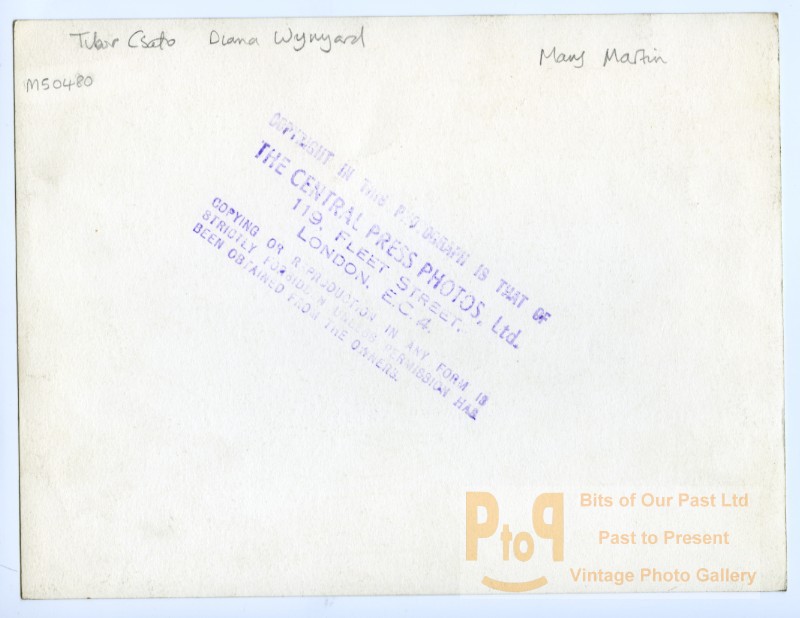 Tibor Csato Diana Wynyard
Mary Martin
M50480
COPYRIGHT IN THIS PHOTOGRAPH IS THAT OF
THE CENTRAL PRESS PHOTOS, Ltd.
119, FLEET STREET,
LONDON, E.C.4.
COPYING OR REPRODUCTION IN ANY FORM IS
STRICTLY FORBIDDEN UNLESS PERMISSION HAS
BEEN OBTAINED FROM THE OWNERS.
PtoP
Bits of Our Past Ltd
Past to Present
Vintage Photo Gallery